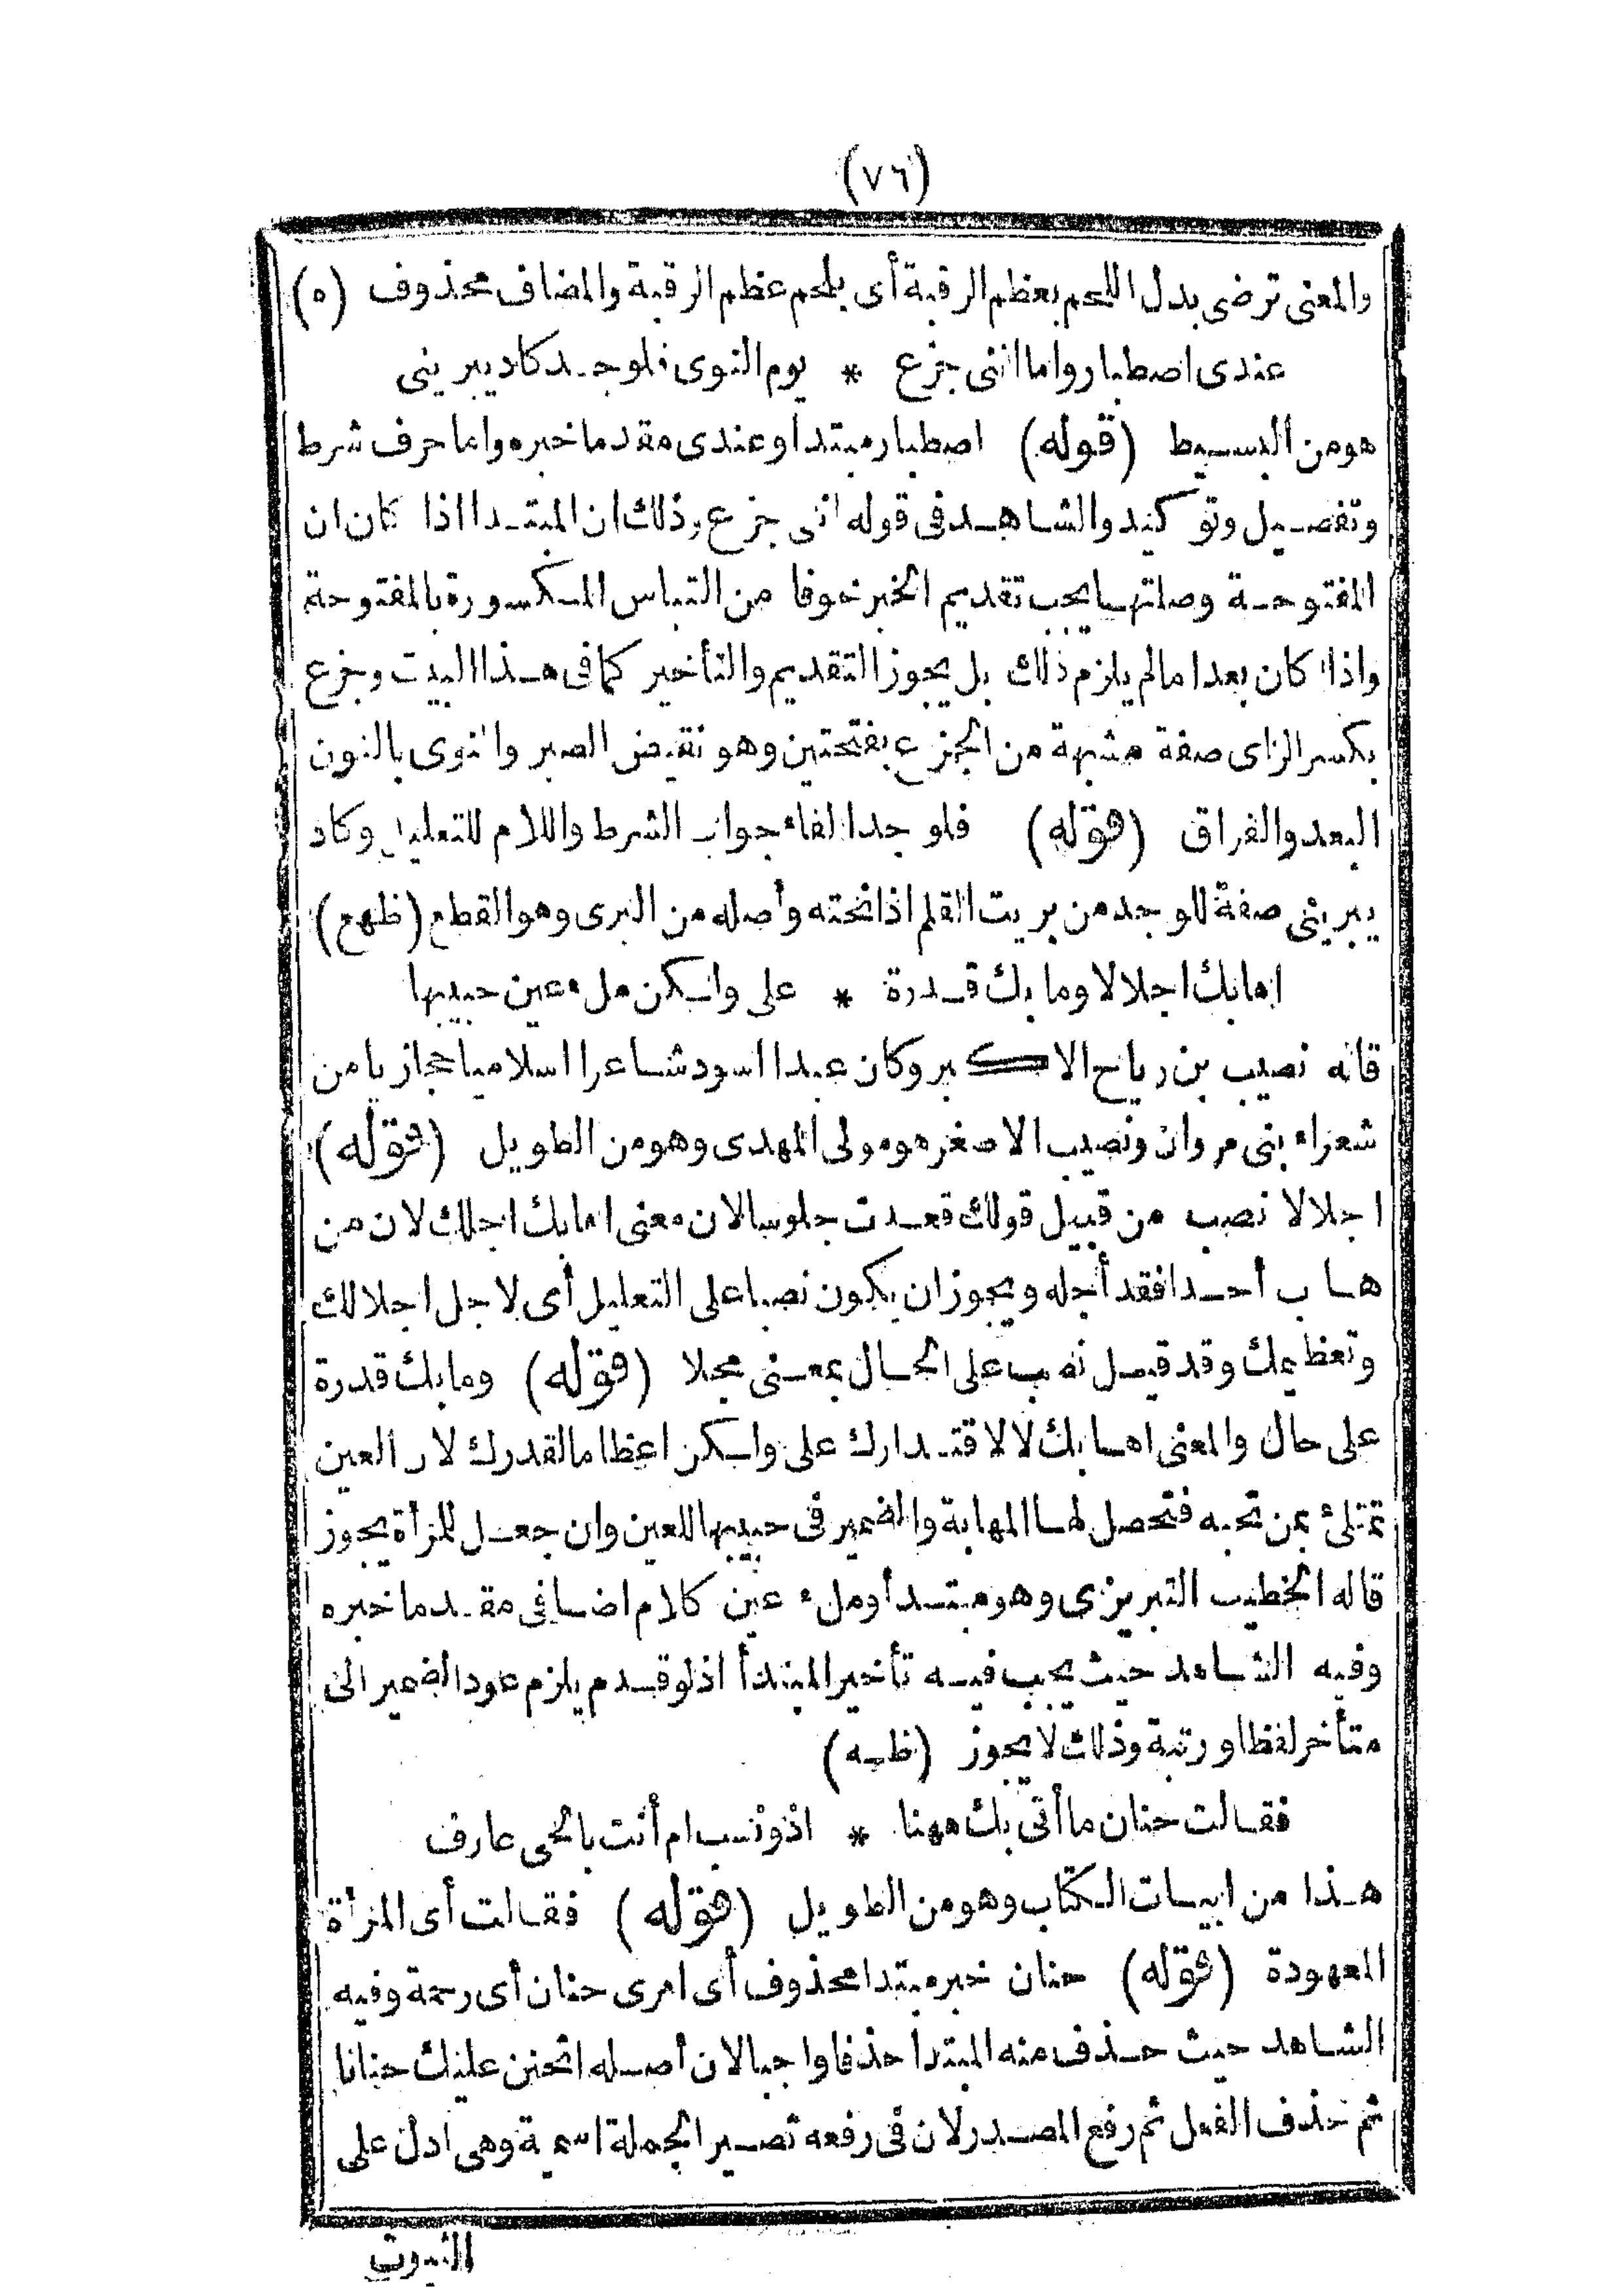 (٧٦)
والمعنى ترضى بدل اللحم بعظم الرقبة أى بلحم عظم الرقبة والمضاف محذوف (ه)
عندى اصطبار واما اننى جزع * يوم النوى فلوجد كاد يبرينى
هو من البسيط (قوله) اصطبار مبتدأ وعندى مقدما خبره واما حرف شرط
وتفصيل وتوكيد والشاهد فى قوله انى جزع وذلك ان المبتدا اذا كان ان
المفتوحة وصلتها يجب تقديم الخبر خوفا من التباس المكسورة بالمفتوحة
واذا كان بعد اما لم يلزم ذلك بل يجوز التقديم والتأخير كما فى هذا البيت وجزع
بكسر الزاى صفة مشبهة من الجزع بفتحتين وهو نقيض الصبر والنوى بالنون
البعد والفراق (قوله) فلوجد الفاء جواب الشرط واللام للتعليل وكاد
يبرينى صفة للوجد من بريت القلم اذا نحته وأصله من البرى وهو القطع (ظهع)
اهابك اجلالا وما بك قدرة * على ولكن ملء عين حبيبها
قاله نصيب بن رياح الاكبر وكان عبدا اسود شاعرا اسلاميا حجازيا من
شعراء بنى مروان ونصيب الاصغر هو مولى المهدى وهو من الطويل (قوله)
اجلالا نصب من قبيل قولك قعدت جلوسا لان معنى اهابك اجلك لان من
هاب أحدا فقد أجله ويجوز ان يكون نصبا على التعليل أى لاجل اجلالك
وتعظيمك وقد قيل نصب على الحال بمعنى مجلا (قوله) وما بك قدرة
على حال والمعنى اهابك لا لاقتدارك على ولكن اعظاما لقدرك لان العين
تمتلئ بمن تحبه فتحصل لها المهابة والضمير فى حبيبها للعين وان جعل للمرأة يجوز
قاله الخطيب التبريزى وهو مبتدأ وملء عين كلام اضافى مقدما خبره
وفيه الشاهد حيث يجب فيه تأخير المبتدأ اذ لو قدم يلزم عود الضمير الى
متأخر لفظا ورتبة وذلك لا يجوز (ظه)
فقالت حنان ما أتى بك ههنا * اذو نسب ام أنت بالحى عارف
هذا من ابيات الكتاب وهو من الطويل (قوله) فقالت أى المرأة
المعهودة (قوله) حنان خبر مبتدا محذوف أى امرى حنان أى رحمة وفيه
الشاهد حيث حذف منه المبتدأ حذفا واجبا لان أصله اتحنن عليك حنانا
ثم حذف الفعل ثم رفع المصدر لان فى رفعه تصير الجملة اسمية وهى ادل على
الثبوت